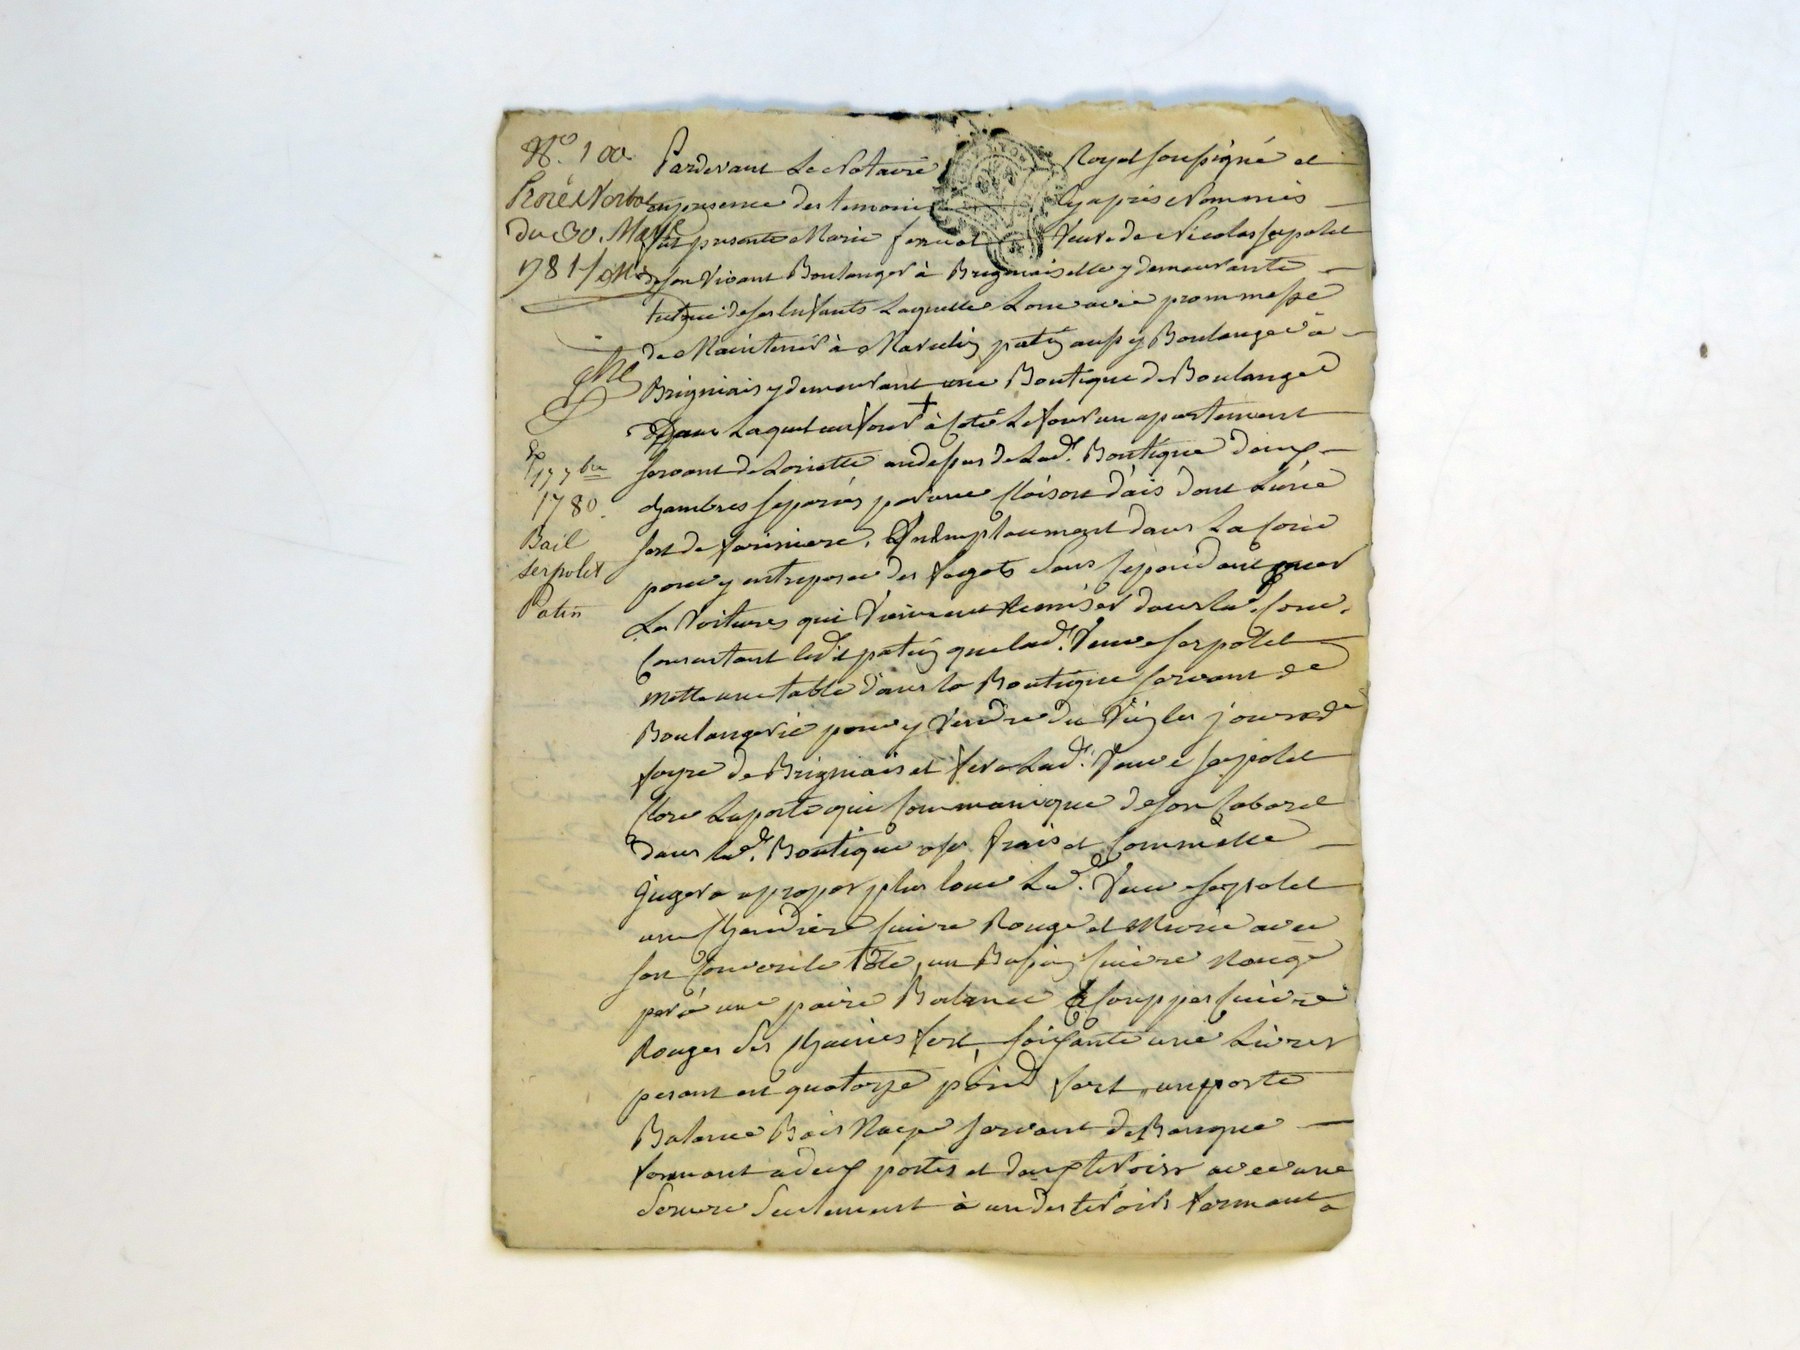 N.º 100
Proc. Verbal
du 30. Mars
1781
Exp
17 7bre
1780.
Bail
Serpolet
Patin
Pardevant Le Notaire Royal soussigné et
en presence des temoins cy après Nommés
fut presente Marie Veuve de Nicolas Serpolet
de son Vivant Boulanger à Brignais elle y demeurante
tutrice de ses Enfants Laquelle Loue avec prommesse
de Maintenir à patin aussy Boulanger à
Brigniais y demeurant une Boutique de Boulanger
dans Laquel un four à Coté Le four un apartement
servant de au dessus de Lad. Boutique deux
chambres separées par une Cloison d'ais dont L'une
sert de fariniere. Un Emplacement dans La Cour
pour y entreposer des fagots sans Cependant gener
Les Voitures qui Viennent Remiser dans lad. Cour.
Consentant led. patin que lad. Veuve Serpolet
mette une table dans la Boutique servant de
Boulangerie pour y Vendre du Vin les jours de
foyre de Brigniais et fera Lad. Veuve Serpolet
Clore La porte qui Communique de son Cabaret
dans lad. Boutique a ses frais et Comme elle
Jugera appropos plus loue Lad. Veuve Serpolet
une Chaudiere Cuivre Rouge et Murée avec
son Couvercle Tôle, un Bassin Cuivre Rouge
une paire Balance Couppes Cuivre
Rouges des Chaines fert, soixante une Livres
pesant en quatorze poid fert, un porte
Balance Bois Noye servant de Banque
fermant a deux portes et deux tiroirs avec une
Serure Seulement à un des tiroirs fermant a